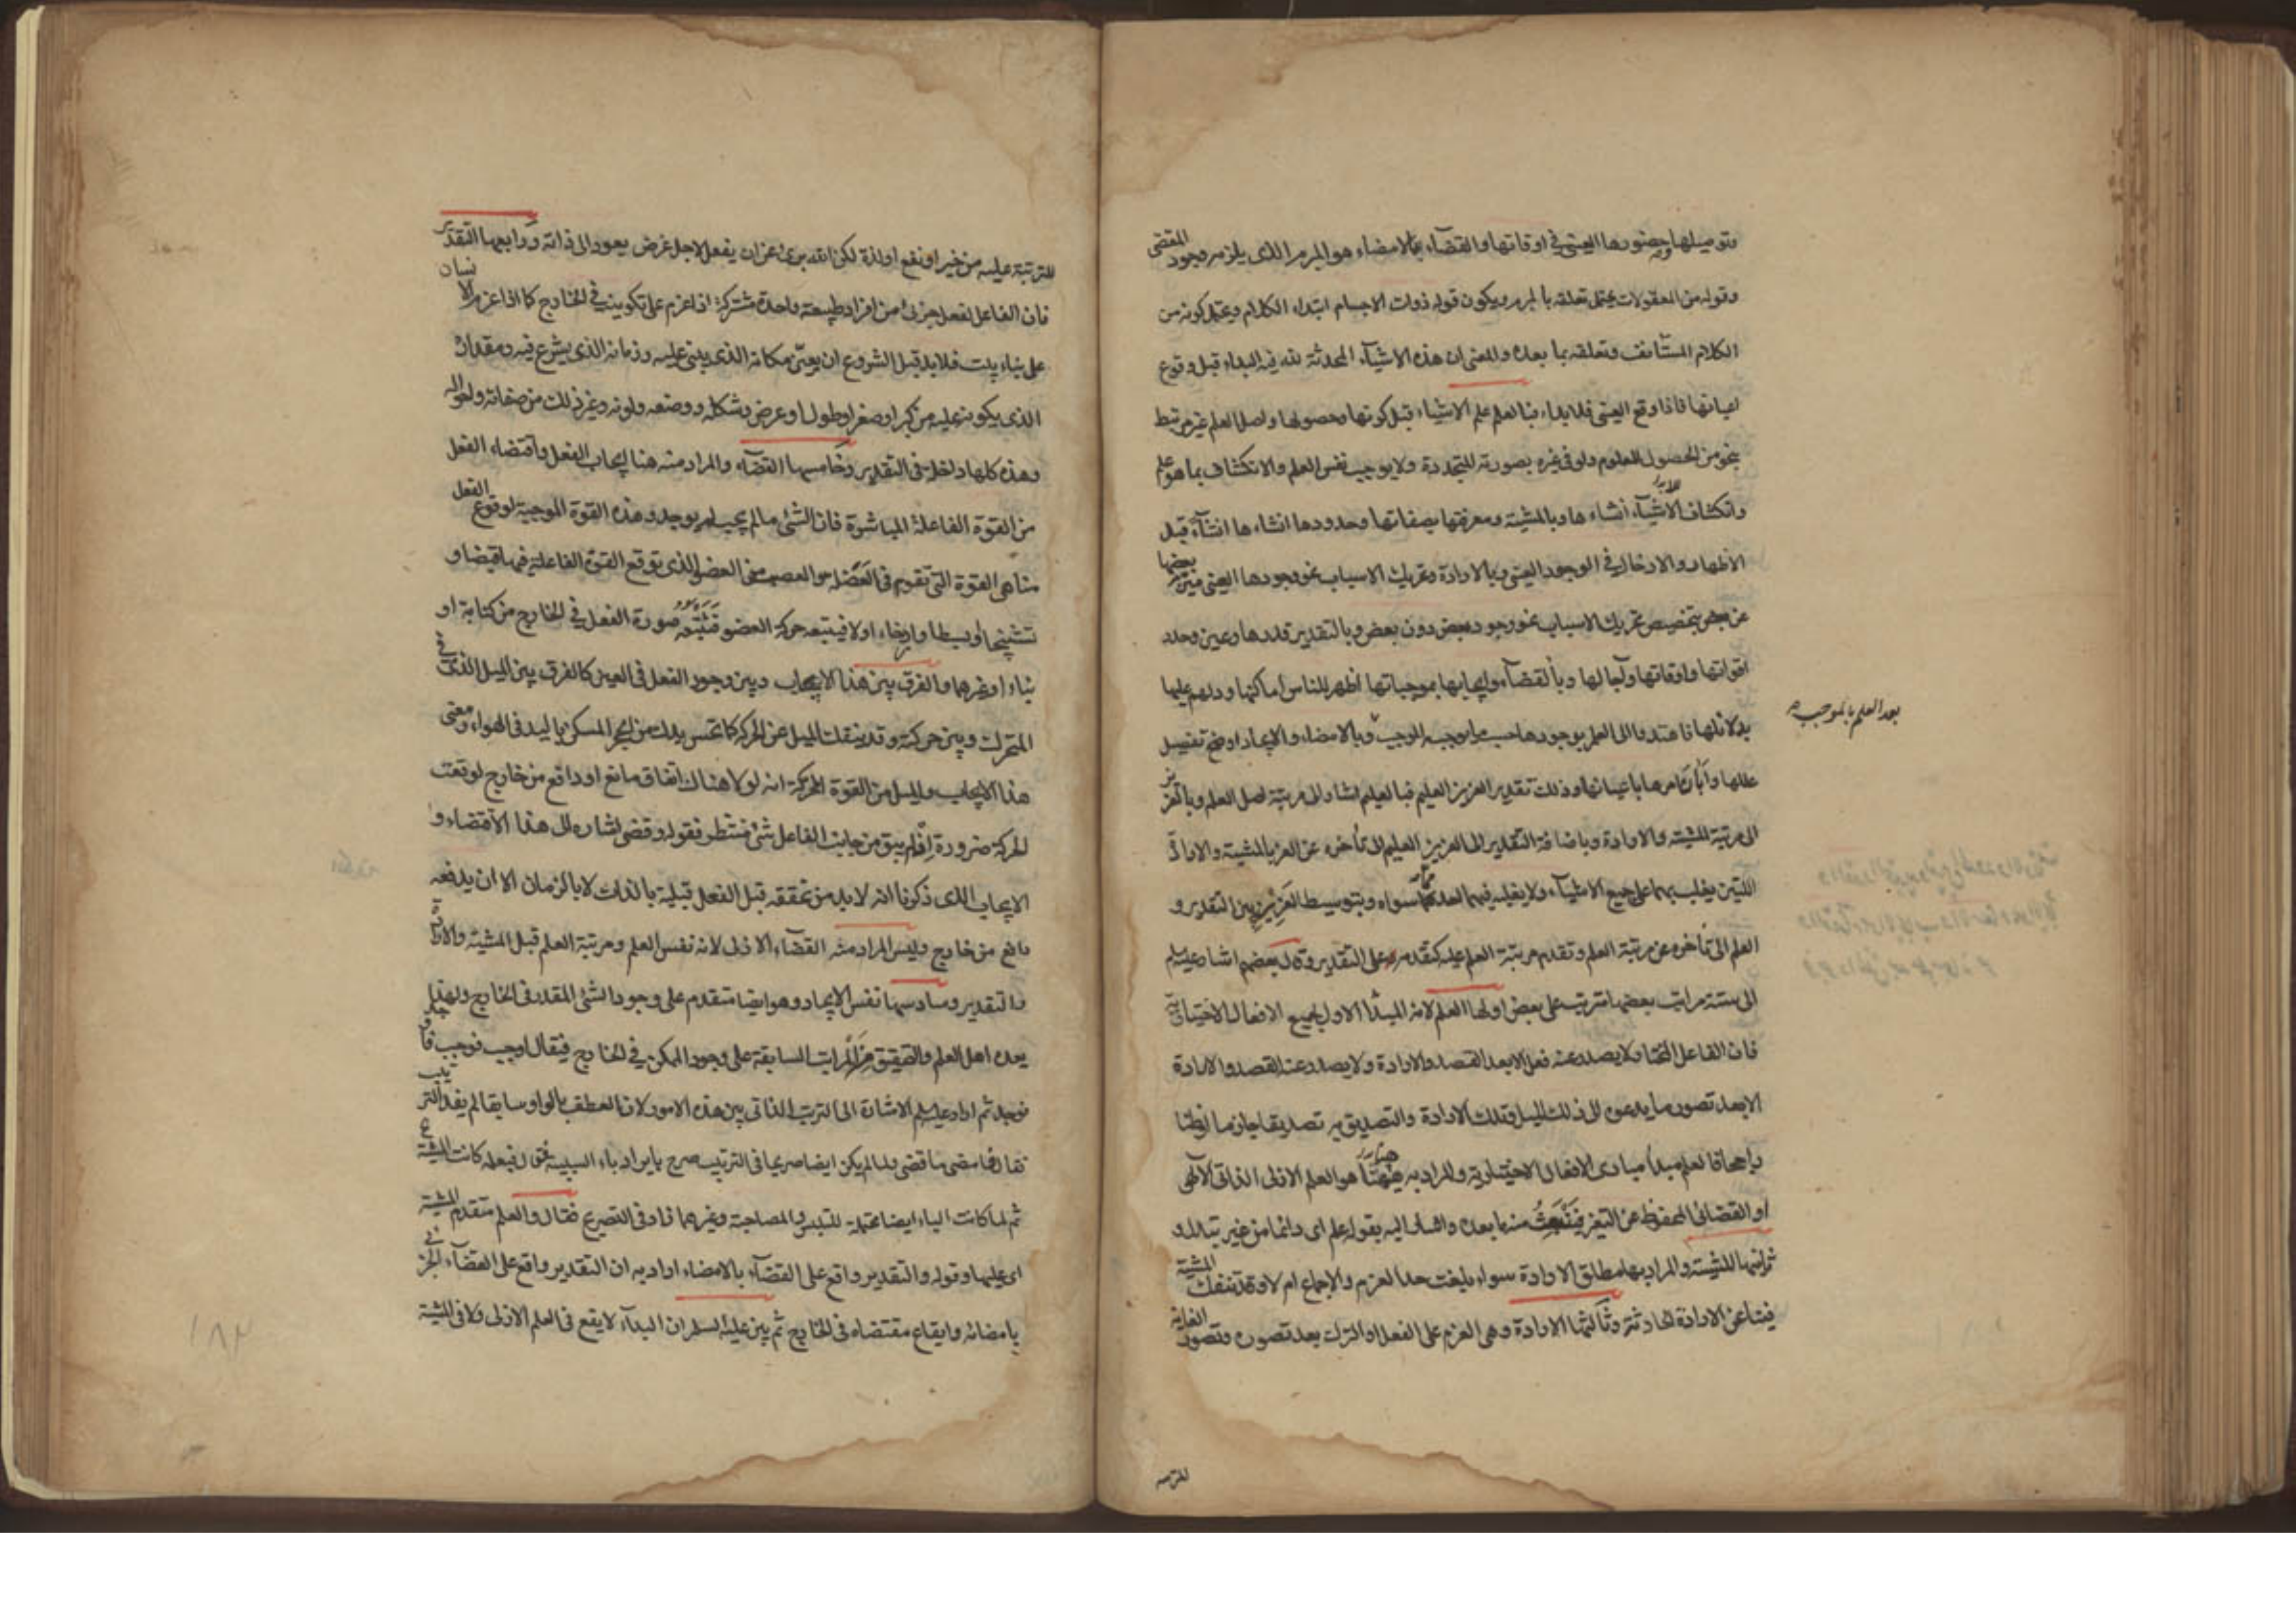 وتوصيلها وحضورها العيني في اوقاتها والقضاء بالامضاء هو المبرم الذي يلزمه وجود المقتضي
وقوله من المعقولات يحتمل تعلقه بالمبرم ويكون قوله ذوات الاجسام ابتداء الكلام ويحتمل كونه من
الكلام المستأنف وتعلقه بما بعده والمعنى ان هذه الاشياء المحدثة لله فيه البداء قبل وقوع
اعيانها فاذا وقع العيني فلا بداء فبالعلم علم الاشياء قبل كونها وحصولها واصل العلم غير مرتبط
بنحو من الحصول للمعلوم ولو في غيره بصورته المتجددة ولا يوجب نفس العلم والانكشاف بما هو علم
وانكشاف الاشياء انشاءها وبالمشية ومعرفتها بصفاتها وحدودها انشاءها انشاء قبل
الاظهار والادخال في الوجود العيني وبالارادة وتحريك الاسباب نحو وجودها العيني ميز بعضها
عن بعض بتخصيص تحريك الاسباب نحو وجود بعض دون بعض وبالتقدير قدرها وعين وحدد
اقواتها واوقاتها وآجالها وبالقضاء وايجابها بموجباتها اظهر للناس اماكنها ودلهم عليها
بدلائلها فاهتدوا الى العلم بوجودها حسب ما يوجبه الموجب وبالامضاء والايجاد اوضح تفصيل
بعد العلم بالموجب
عللها وأبان امرها باعيانها وذلك تقدير العزيز العليم فبالعليم اشار الى مرتبة اصل العلم وبالعزيز
الى مرتبة المشية والارادة وباضافة التقدير الى العزيز العليم الى تأخره عن العز بالمشية والارادة
اللتين يغلب بهما على جميع الاشياء ولا يغلبه فيهما احد مما سواه وبتوسيط العزيز بين التقدير و
العلم الى تأخره عن مرتبة العلم وتقدم مرتبة العلم عليه كتقدمه على التقدير وقال بعضهم اشار عليه السلم
الى ستة مراتب بعضها مترتب على بعض اولها العلم لانه المبدأ الاول لجميع الافعال الاختيارية
فان الفاعل المختار لا يصدر عنه فعل الا بعد القصد والارادة ولا يصدر عنه القصد والارادة
الا بعد تصور ما يدعوه الى ذلك الميل وتلك الارادة والتصديق به تصديقا جازما او ظنا
راجحا فالعلم مبدأ مبادى الافعال الاختيارية والمراد به هيهنا هو العلم الازلي الذاتي الالهي
او القضائي المحفوظ عن التغير فينبعث منه ما بعده واشار اليه بقوله علم اى دائما من غير تبدل و
ثانيها المشية والمراد بها مطلق الارادة سواء بلغت حد العزم والاجماع ام لا وقد تنفك المشية
فينا عن الارادة الحادثة وثالثها الارادة وهي العزم على الفعل او الترك بعد تصوره وتصور الغاية
المترتبة
المترتبة عليه من خير او نفع او لذة لكن الله برىء عن ان يفعل لاجل غرض يعود الى ذاته ورابعها التقدير
فان الفاعل لفعل جزئى من افراد طبيعة واحدة مشتركة اذا عزم على تكوينه في الخارج كما اذا عزم الانسان
على بناء بيت فلا بد قبل الشروع ان يعين مكانه الذي يبنى عليه وزمانه الذي يشرع فيه ومقداره
الذي يكونه عليه من كبر او صغر او طول او عرض وشكله ووضعه ولونه وغير ذلك من صفاته واحواله
وهذه كلها داخلة في التقدير وخامسها القضاء والمراد منه هنا ايجاب الفعل واقتضاء الفعل
من القوة الفاعلة المباشرة فان الشئ ما لم يجب لم يوجد وهذه القوة الموجبة لوقوع الفعل
منا هي القوة التي تقوم في العضل والعصب من العضو الذي توقع القوة الفاعلة فيها قبضا و
تشنيجا او بسطا وارخاء اولا فيتبعه حركة العضو فتتبعه صورة الفعل في الخارج من كتابة او
بناء او غيرهما والفرق بين هذا الايجاب وبين وجود الفعل في العين كالفرق بين الميل الذي في
المتحرك وبين حركته وقد ينفك الميل عن الحركة كما تحس يدك من الحجر المسكن باليد في الهواء ومعنى
هذا الايجاب والميل من القوة المحركة انه لولا هناك اتفاق مانع او دافع من خارج لوقعت
الحركة ضرورة اذ لم يبق من جانب الفاعل شئ منتظر فقوله وقضى اشارة الى هذا الاقتضاء و
الايجاب الذي ذكرنا انه لا بد من تحققه قبل الفعل قبلية بالذات لا بالزمان الا ان يدفعه
دافع من خارج وليس المراد منه القضاء الازلي لانه نفس العلم ومرتبة العلم قبل المشية والارادة
والتقدير وسادسها نفس الايجاد وهو ايضا متقدم على وجود الشئ المقدر في الخارج ولهذا
يعده اهل العلم والتحقيق من المراتب السابقة على وجود الممكن في الخارج فيقال اوجب فوجب فاوجد
فوجد ثم اراد عليه السلم الاشارة الى الترتيب الذاتي بين هذه الامور لان العطف بالواو سابقا لم يفد الترتيب
فقال فامضى ما قضى ولما لم يكن ايضا صريحا في الترتيب صرح بايراد باء السببية فقال فبعلمه كانت المشية
ثم لما كانت الباء ايضا محتملة للتلبس والمصاحبة وغيرهما زاد في التصريح فقال والعلم متقدم المشية
اى عليها وقوله والتقدير واقع على القضاء بالامضاء اراد به ان التقدير واقع على القضاء الجزئى
بامضائه وايقاع مقتضاه في الخارج ثم بين عليه السلم ان البداء لا يقع في العلم الازلي ولا في المشية
١٨٢